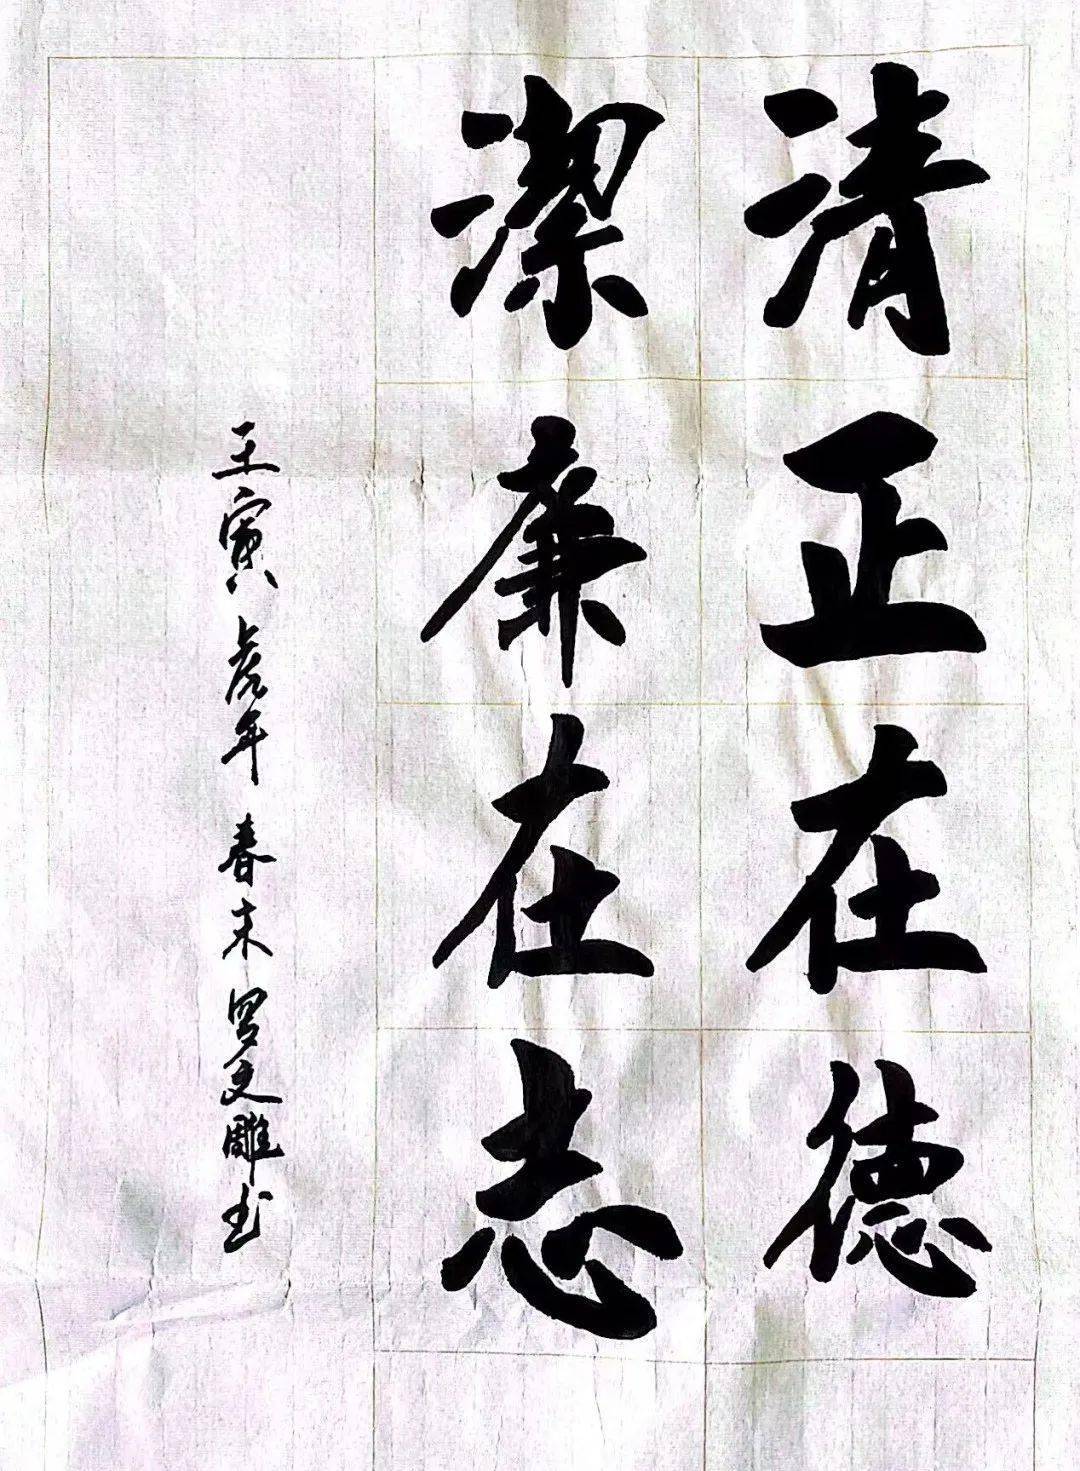 清正在德
潔廉在志
壬寅虎年春末罗文雕书